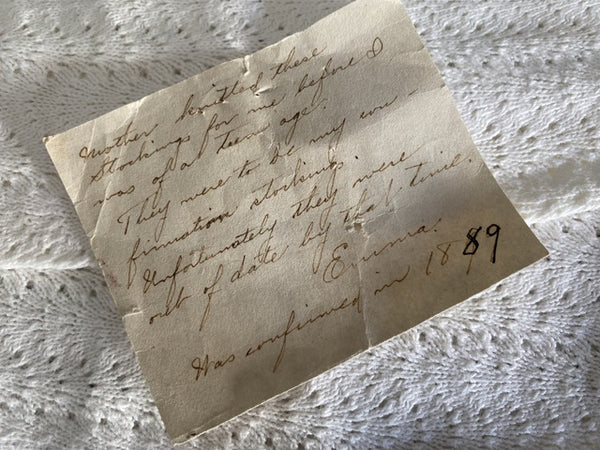 Mother knitted these
stockings for me before I
was of a teen age.
They were to be my con-
firmation stockings.
Unfortunately they were
out of date by that time.
Emma.
Was confirmed in 1889